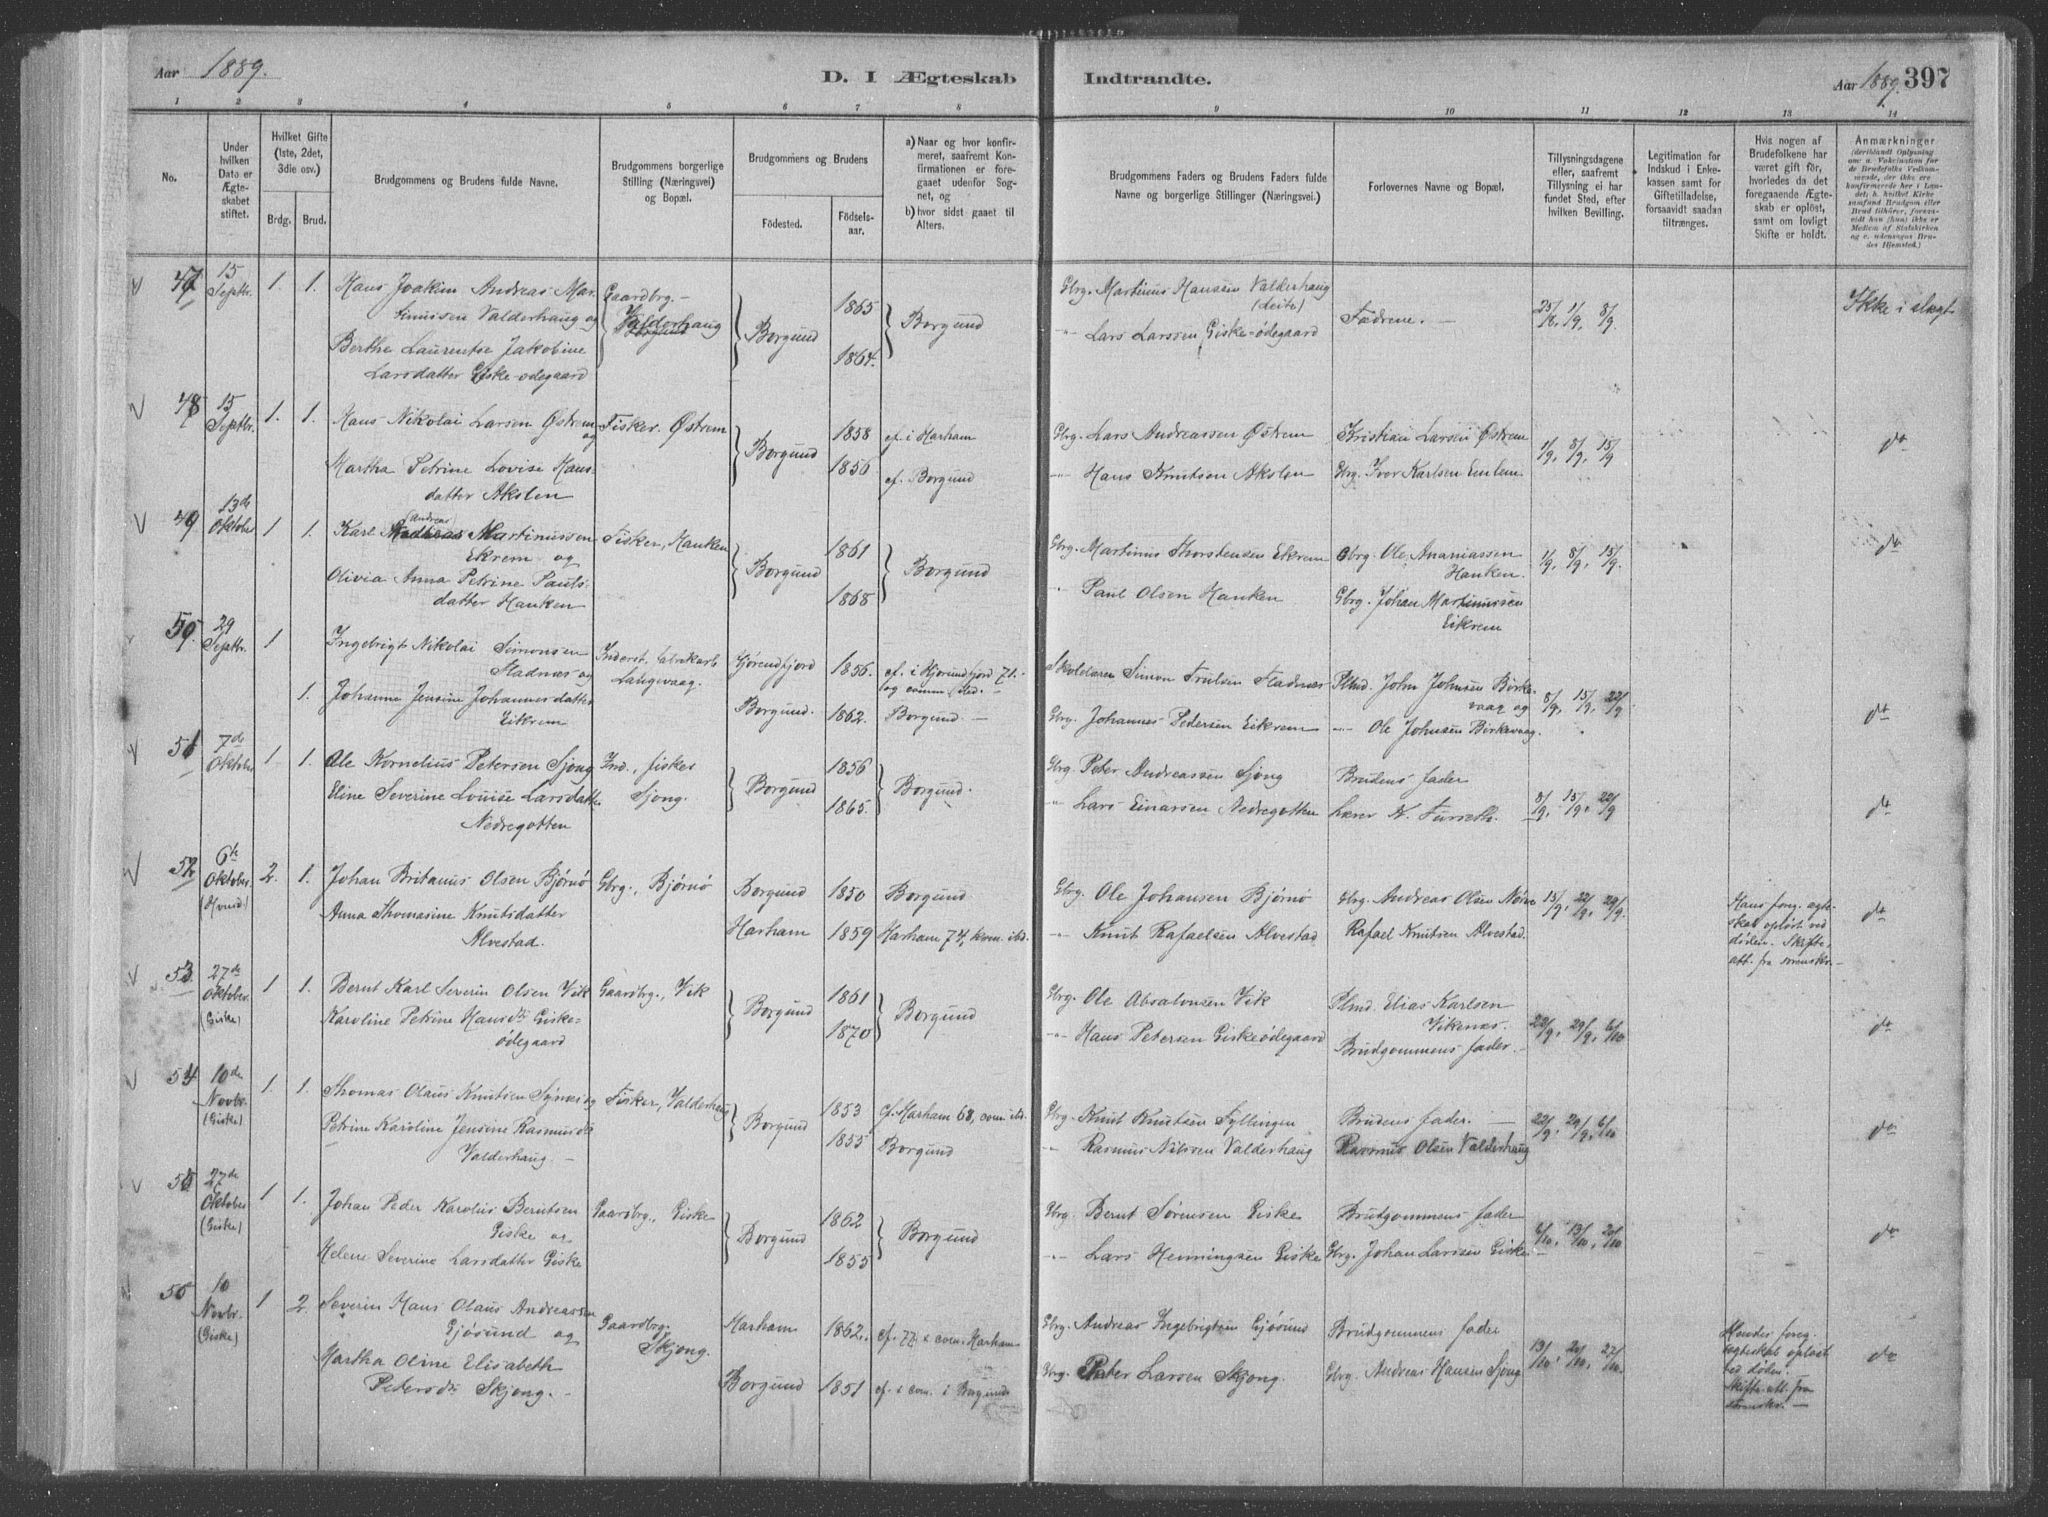 Aar 1889.
D. I Ægteskab Indtraadte.
Aar 1889. 397
1 2 3 4 5 6 7 8 9 10 11 12 13 14
No.
Under hvilken Dato er Ægteskabet stiftet.
Hvilket Gifte (1ste, 2det, 3die osv.)
Brdg. Brud.
Brudgommens og Brudens fulde Navne.
Brudgommens borgerlige Stilling (Næringsvei) og Bopæl.
Brudgommens og Brudens
Fødested. Fødselsaar.
a) Naar og hvor konfirmeret, saafremt Konfirmationen er foregaaet udenfor Sognet, og
b) hvor sidst gaaet til Alters.
Brudgommens Faders og Brudens Faders fulde Navne og borgerlige Stillinger (Næringsvei.)
Forlovernes Navne og Bopæl.
Tillysningsdagene eller, saafremt Tillysning ei har fundet Sted, efter hvilken Bevilling.
Legitimation for Indskud i Enkekassen samt for Giftetilladelse, forsaavidt saadan tiltrænges.
Hvis nogen af Brudefolkene har været gift før, hvorledes da det foregaaende Ægteskab er opløst, samt om lovligt Skifte er holdt.
Anmærkninger
47 15 Septbr. 1. 1. Hans Joakim Andreas Martinussen Valderhaug og
Bertha Laurentse Jakobine
Larsdatter Giske-ødegaard
Gaardbrg. – Valderhaug
Borgund 1865 1864. Borgund
Gbrg. Martinus Hansen Valderhaug
Lars Larssen Giske-ødegaard
Fædrene. –
25/8, 1/9, 8/9
Ikke i slægt
48 15 Septbr. 1. 1. Hans Nikolai Larsen Østrem og
Martha Petrine Lovise Hansdatter Akslen
Fisker. Østrem
Borgund 1858 1856 cf. i Harham
cf. Borgund
Gbrg. Lars Andreassen Østrem
Hans Knutsen Akslen
Kristian Larsen Østrem
Gbrg. Iver Karlsen Emlem
1/9, 8/9, 15/9
do
49 13de Oktober 1 1. Karl Andreas Martinussen
Ekrem og
Olivia Anna Petrine Paulsdatter Hanken
Fisker, Hanken
Borgund 1861 1868 Borgund
Gbrg. Martinus Thorstensen Eikrem
Paul Olsen Hanken
Gbrg. Ole Ananiassen Hanken.
Gbrg. Johan Martinussen Eikrem
1/9, 8/9, 15/9.
do
50. 29 Septbr. 1 1. Ingebrigt Nikolai Simonsen
Stadnæs og
Johanne Jensine Johannesdatter
Eikrem
Inderst, fabrikarb. Langevaag.
Hjørendfjord 1856. cf. i Hjørundfjord 71.
Borgund. 1862. Borgund. –
Skolelærer Simon Trulsen Stadnæs
Gbrg. Johannes Pedersen Eikrem
Plmd. John Johnsen Børkevaag og
Ole Johnsen Børkevaag.
8/9, 15/9, 22/9
do
51 7de Oktober 1. 1. Ole Kornelius Petersen Sjong
Eline Severine Louise Larsdatter
Nedregotten
Ind., fisker Sjong.
Borgund 1856 1865. Borgund.
Gbrg. Peter Andreassen Sjong
Lars Einarsen Nedregotten
Brudens fader
Lærer K. Furseth.
8/9, 15/9, 22/9
do
52 6te Oktober 2. 1. Johan Britanus Olsen Bjørnø
Anna Thomasine Knutsdatter
Alvestad.
Gbrg., Bjørnø
Borgund 1850 Borgund
Harham 1859 Harham 74, kom. ibd.
Gbrg. Ole Johansen Bjørnø
Knut Rafaelsen Alvestad
Gbrg. Andreas Olsen Nørve
Rafael Knutsen Alvestad.
15/9, 22/9, 29/9.
Hans foreg. ægteskab opløst ved døden. Skifteatt. fra sorenskr. –
do
53 27de Oktober (Giske) 1 1. Bernt Karl Severin Olsen Vik
Karoline Petrine Hansdtr Giskeødegaard
Gaardbrg., Vik
Borgund 1861 1870 Borgund
Gbrg. Ole Absalonsen Vik
Hans Petersen Giskeødegaard
Plmd. Elias Karlsen Vikenæs.
Brudgommens fader. –
22/9, 29/9, 6/10
do
54 10de Novbr. (Giske) 1. 1. Thomas Olaus Knutsen Synnes og
Petrine Karoline Jensine Rasmusdtr
Valderhaug. –
Fisker, Valderhaug
Borgund 1853 1855 cf. Harham 68, com. ibd.
Borgund
Gbrg. Knut Knutsen Syllingen
Rasmus Nilssen Valderhaug
Brudens fader. –
Rasmus Olsen Valderhaug
22/9, 29/9, 6/10
do
55 27de Oktober (Giske) 1 1. Johan Peder Karolius Berntsen
Giske og
Helene Severine Larsdatter Giske
Gaardbrg., Giske
Borgund 1862 1855 Borgund
Gbrg. Bernt Sørensen Giske
Lars Henningsen Giske
Brudgommens fader
Gbrg. Johan Larssen Giske –
6/10, 13/10, 20/10
do
56 10 Novbr. (Giske) 1 2. Severin Hans Olaus Andreassen
Gjøsund og
Martha Oline Elisabeth
Petersdtr Skjong. –
Gaardbrg. Skjong.
Harham 1862. cf. 77 & com. Harham
Borgund 1851 cf. & com. i Borgund
Gbrg. Andreas Ingebrigtsen Gjøsund
Gbrg. Peter Larsen Skjong.
Brudgommens fader
Gbrg. Andreas Hansen Sjong
13/10, 20/10, 27/10
Hendes foreg. ægteskab opløst ved døden. Skifte att. fra sorenskr. –
do